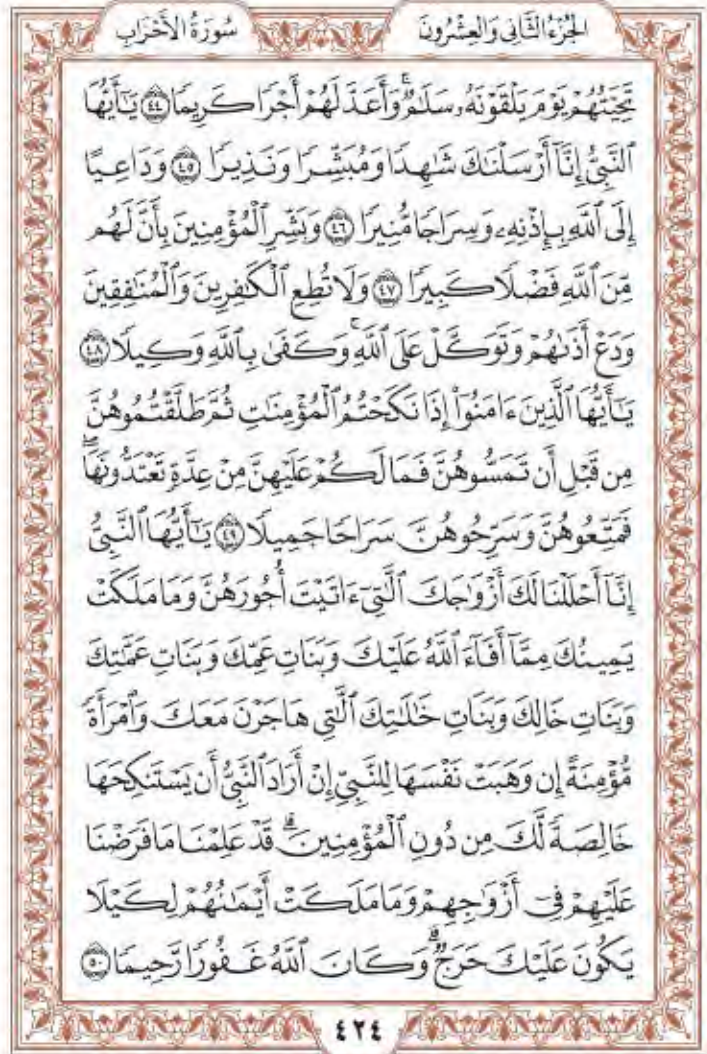 سُورَةُ الأَحْزَابِ
الجُزْءُ الثَّانِي وَالعِشْرُونَ
تَحِيَّتُهُمْ يَوْمَ يَلْقَوْنَهُۥ سَلَٰمٌۚ وَأَعَدَّ لَهُمْ أَجْرًا كَرِيمًا ٤٤ يَٰٓأَيُّهَا
ٱلنَّبِيُّ إِنَّآ أَرْسَلْنَٰكَ شَٰهِدًا وَمُبَشِّرًا وَنَذِيرًا ٤٥ وَدَاعِيًا
إِلَى ٱللَّهِ بِإِذْنِهِۦ وَسِرَاجًا مُّنِيرًا ٤٦ وَبَشِّرِ ٱلْمُؤْمِنِينَ بِأَنَّ لَهُم
مِّنَ ٱللَّهِ فَضْلًا كَبِيرًا ٤٧ وَلَا تُطِعِ ٱلْكَٰفِرِينَ وَٱلْمُنَٰفِقِينَ
وَدَعْ أَذَىٰهُمْ وَتَوَكَّلْ عَلَى ٱللَّهِۚ وَكَفَىٰ بِٱللَّهِ وَكِيلًا ٤٨
يَٰٓأَيُّهَا ٱلَّذِينَ ءَامَنُوٓاْ إِذَا نَكَحْتُمُ ٱلْمُؤْمِنَٰتِ ثُمَّ طَلَّقْتُمُوهُنَّ
مِن قَبْلِ أَن تَمَسُّوهُنَّ فَمَا لَكُمْ عَلَيْهِنَّ مِنْ عِدَّةٍ تَعْتَدُّونَهَاۖ
فَمَتِّعُوهُنَّ وَسَرِّحُوهُنَّ سَرَاحًا جَمِيلًا ٤٩ يَٰٓأَيُّهَا ٱلنَّبِيُّ
إِنَّآ أَحْلَلْنَا لَكَ أَزْوَٰجَكَ ٱلَّٰتِيٓ ءَاتَيْتَ أُجُورَهُنَّ وَمَا مَلَكَتْ
يَمِينُكَ مِمَّآ أَفَآءَ ٱللَّهُ عَلَيْكَ وَبَنَاتِ عَمِّكَ وَبَنَاتِ عَمَّٰتِكَ
وَبَنَاتِ خَالِكَ وَبَنَاتِ خَٰلَٰتِكَ ٱلَّٰتِي هَاجَرْنَ مَعَكَ وَٱمْرَأَةً
مُّؤْمِنَةً إِن وَهَبَتْ نَفْسَهَا لِلنَّبِيِّ إِنْ أَرَادَ ٱلنَّبِيُّ أَن يَسْتَنكِحَهَا
خَالِصَةً لَّكَ مِن دُونِ ٱلْمُؤْمِنِينَۗ قَدْ عَلِمْنَا مَا فَرَضْنَا
عَلَيْهِمْ فِيٓ أَزْوَٰجِهِمْ وَمَا مَلَكَتْ أَيْمَٰنُهُمْ لِكَيْلَا
يَكُونَ عَلَيْكَ حَرَجٌۗ وَكَانَ ٱللَّهُ غَفُورًا رَّحِيمًا ٥٠
٤٢٤